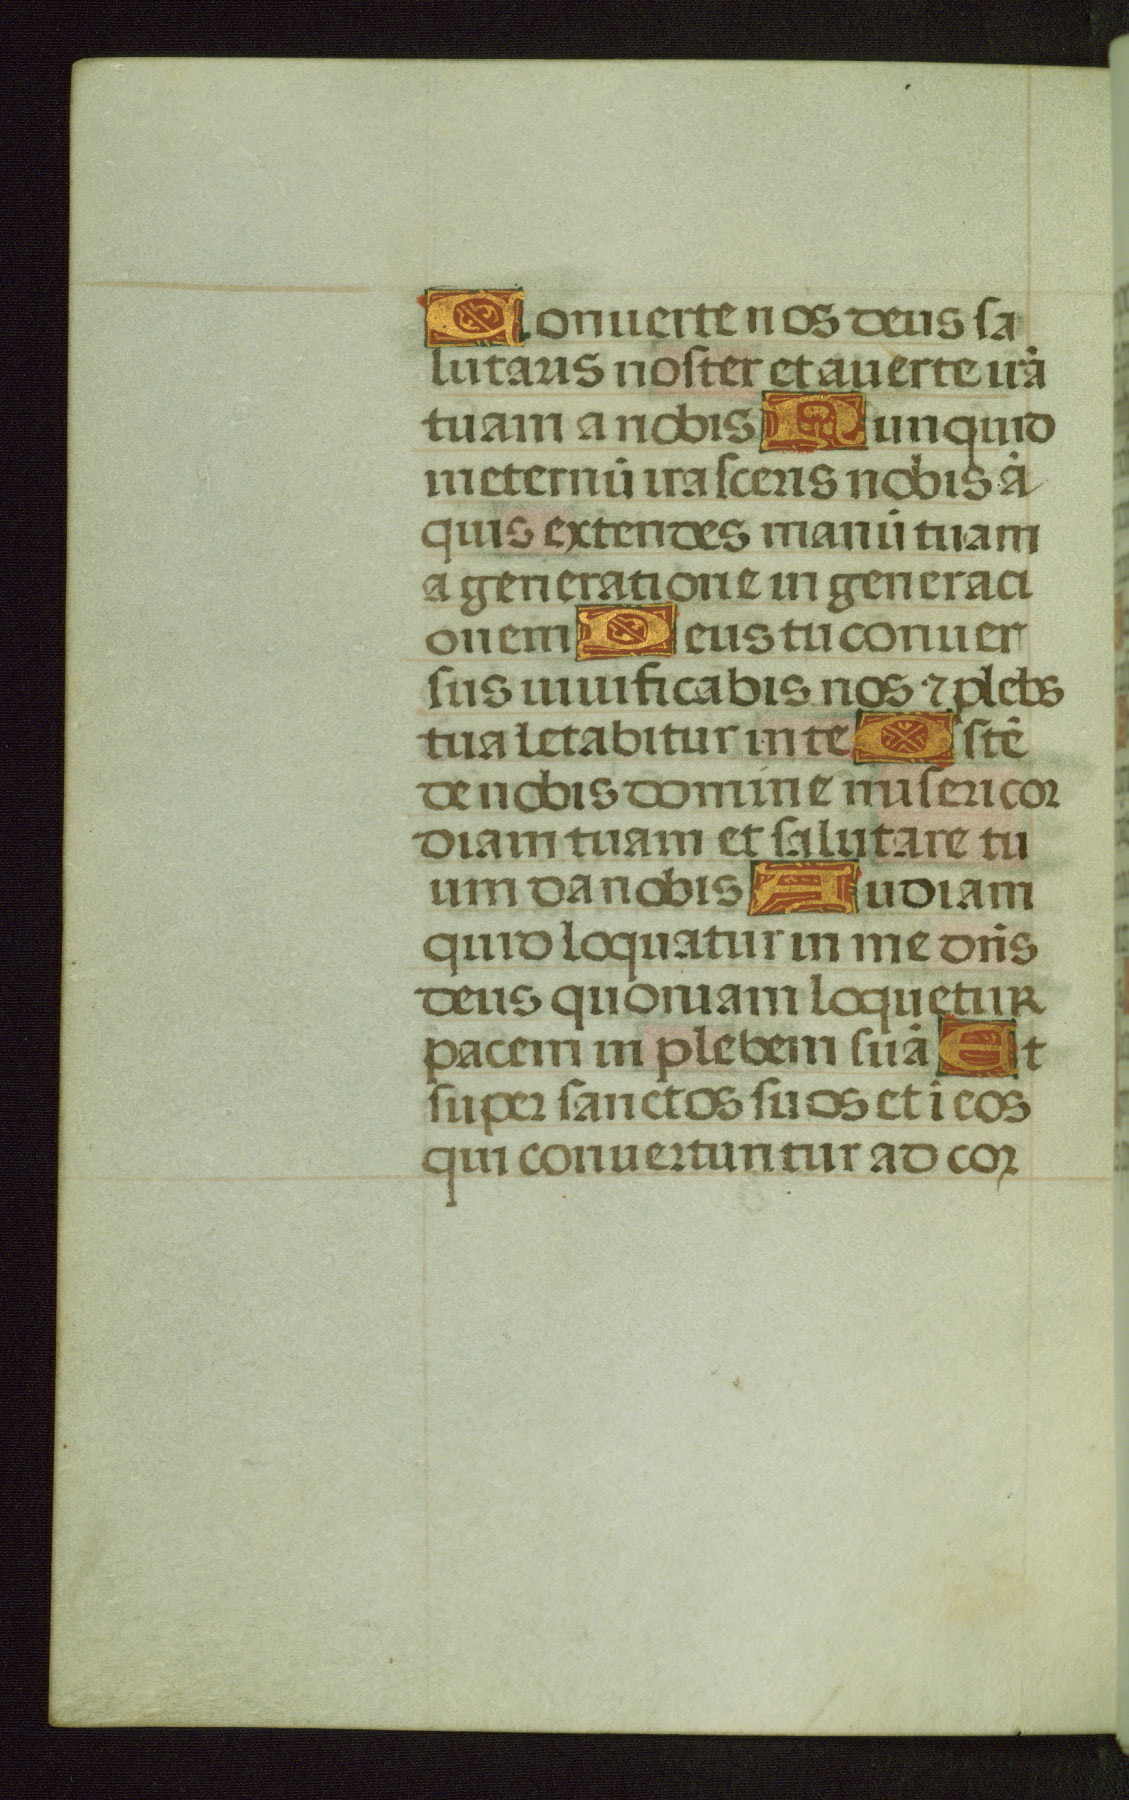 Conuerte nos deus sa
lutaris noster et auerte irā
tuam a nobis Nunquid
in eternū irasceris nobis ā
quis extendes manū tuam
a generatione in generaci
onem Deus tu conuer
sus uiuificabis nos ⁊ plebs
tua letabitur in te Ostē
de nobis domine misericor
diam tuam et salutare tu
um da nobis Audiam
quid loquatur in me dn̄s
deus quoniam loquetur
pacem in plebem suā Et
super sanctos suos et ī eos
qui conuertuntur ad cor